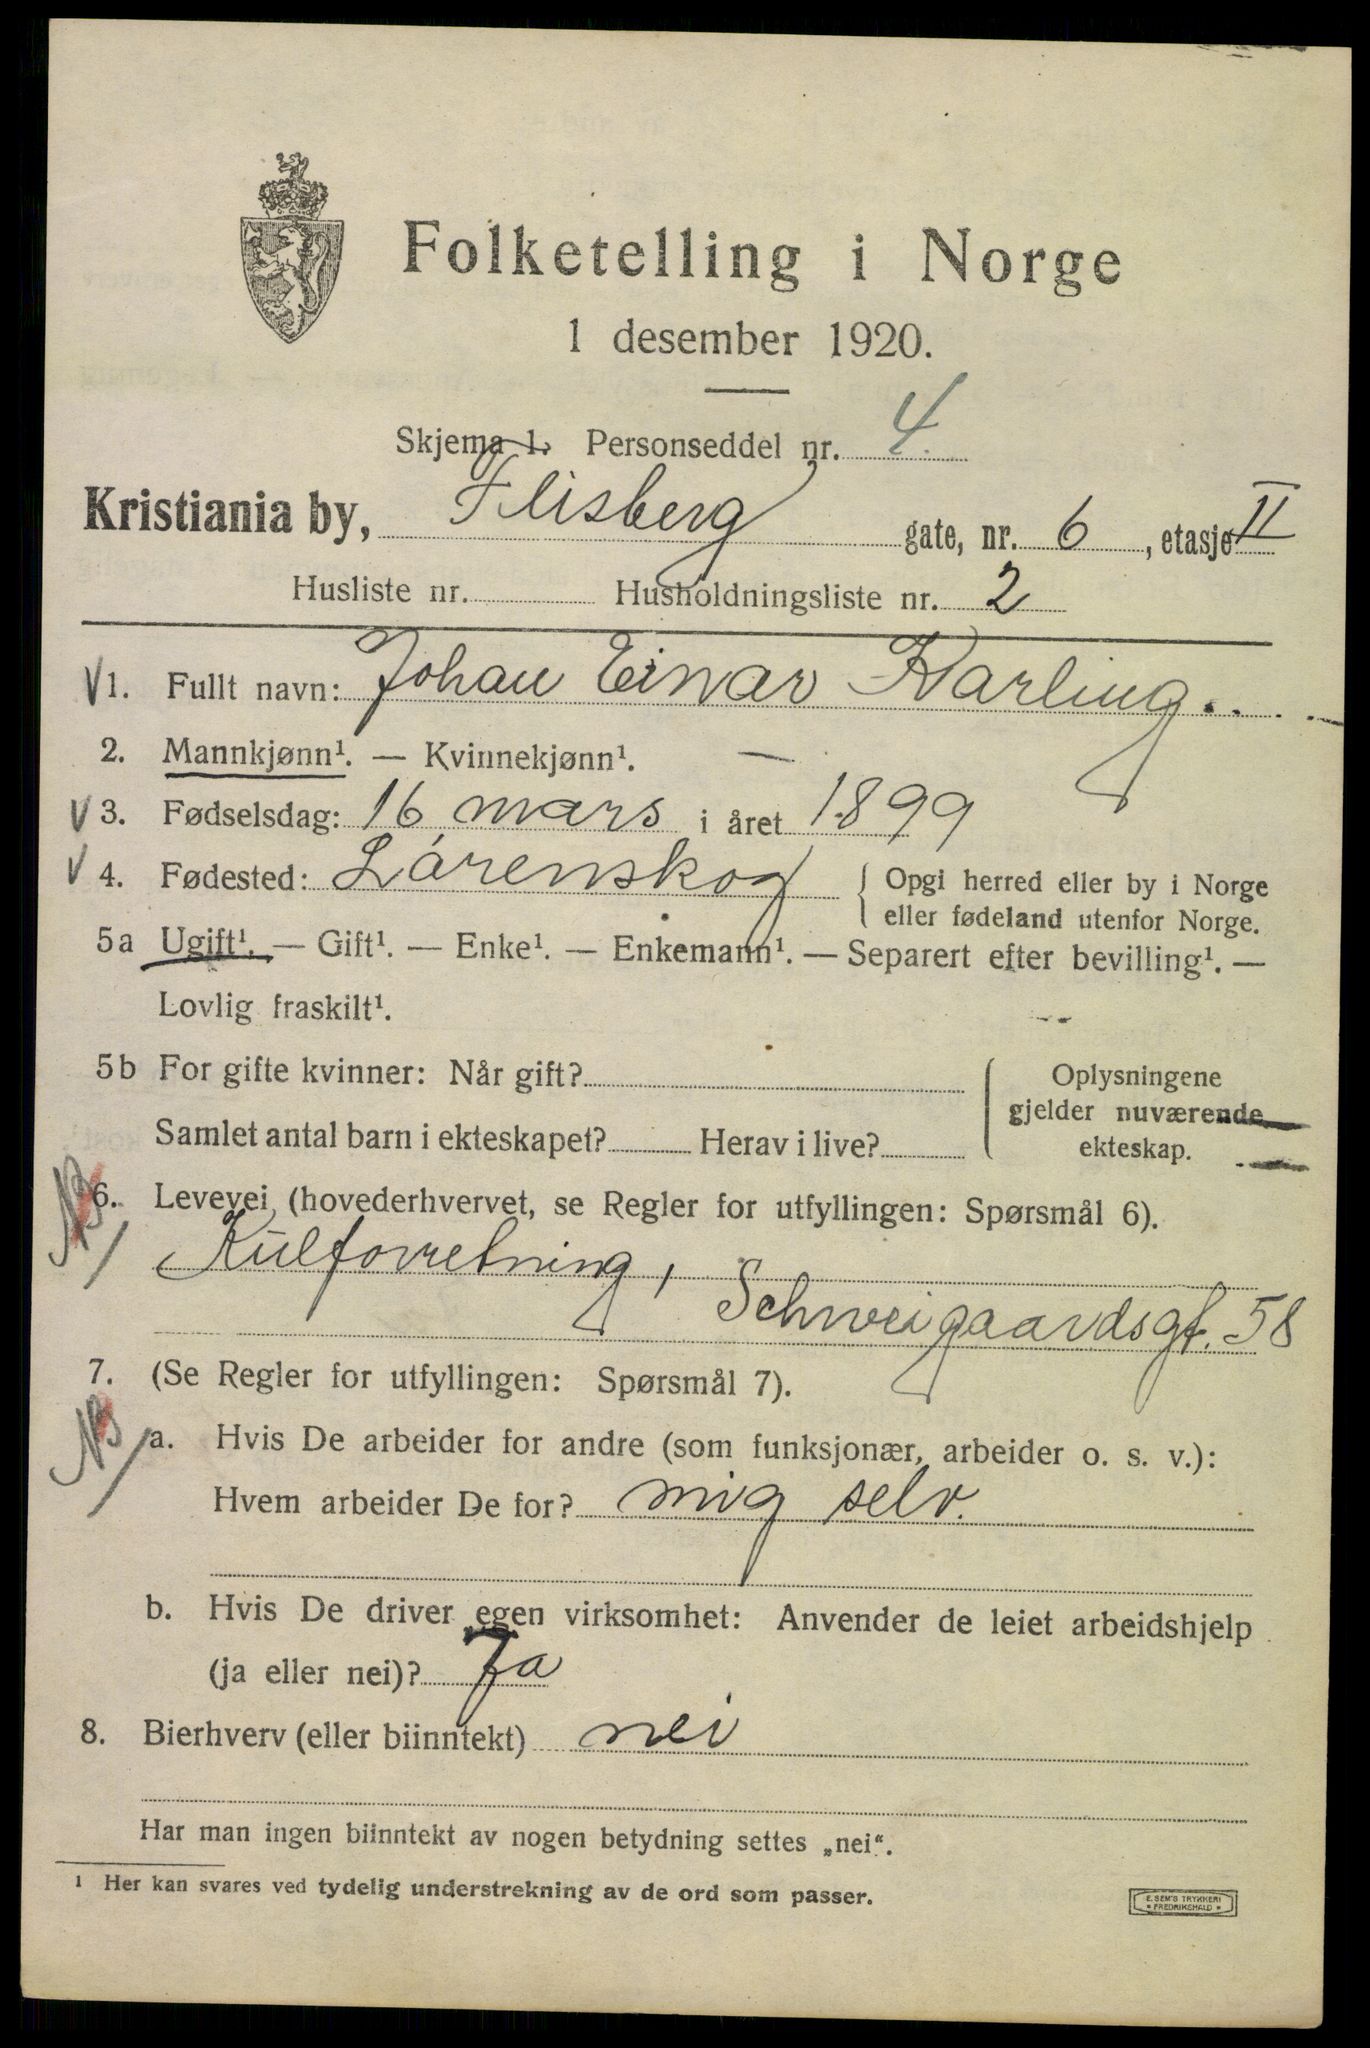 Folketelling i Norge
1 desember 1920.
Skjema 1. Personseddel nr. 4.
Kristiania by, Flisberg gate, nr. 6, etasje II
Husliste nr. Husholdningsliste nr. 2
V 1. Fullt navn: Johan Einar Karling.
2. Mannkjønn¹. — Kvinnekjønn¹. —
V 3. Fødselsdag: 16 mars i året 1899
V 4. Fødested: Lørenskog { Opgi herred eller by i Norge
eller fødeland utenfor Norge.
5a Ugift¹. — Gift¹. — Enke¹. — Enkemann¹. — Separert efter bevilling¹. —
Lovlig fraskilt¹.
5b For gifte kvinner: Når gift? { Oplysningene
gjelder nuværende
Samlet antal barn i ekteskapet? Herav i live? ekteskap.
NB 6. Levevei (hovederhvervet, se Regler for utfyllingen: Spørsmål 6).
Kulforretning,
Schweigaardsgt. 58
7. (Se Regler for utfyllingen: Spørsmål 7).
NB a. Hvis De arbeider for andre (som funksjonær, arbeider o. s. v.):
Hvem arbeider De for? mig selv.
b. Hvis De driver egen virksomhet: Anvender de leiet arbeidshjelp
(ja eller nei)? Ja
8. Bierhverv (eller biinntekt) nei
Har man ingen biinntekt av nogen betydning settes „nei“.
¹ Her kan svares ved tydelig understrekning av de ord som passer.
E. SEM'S TRYKKERI
* FREDRIKSHALD *